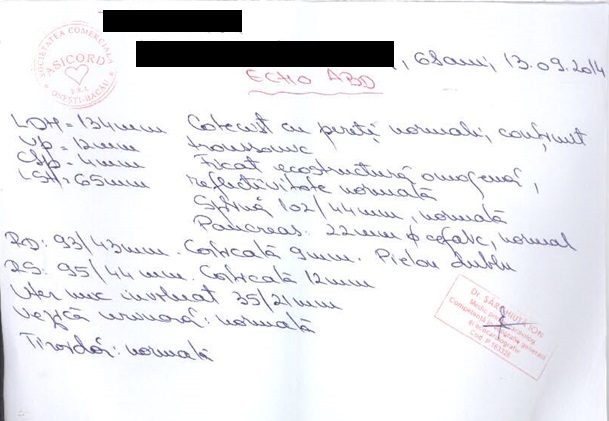 SOCIETATEA COMERCIALA
ASICORD
S.R.L.
ONEȘTI-BACĂU
, 68 ani, 13.09.2014
ECHO ABD
LDH = 134mm Colecist cu pereți normali, conținut
VP = 12mm transsonic
CBP = 4mm Ficat ecostructură omogenă,
LSH = 65mm reflectivitate normală
Splină 102/44mm, normală
Pancreas: 22mm φ cefalic, normal
RD: 93/43mm. Corticală 9mm. Pielon dublu
RS: 95/44mm. Corticală 12mm
Uter mic involuat 35/21mm
Vezică urinară: normală
Tiroidă: normală
Dr. ION
Medic
Competență generală
Cod